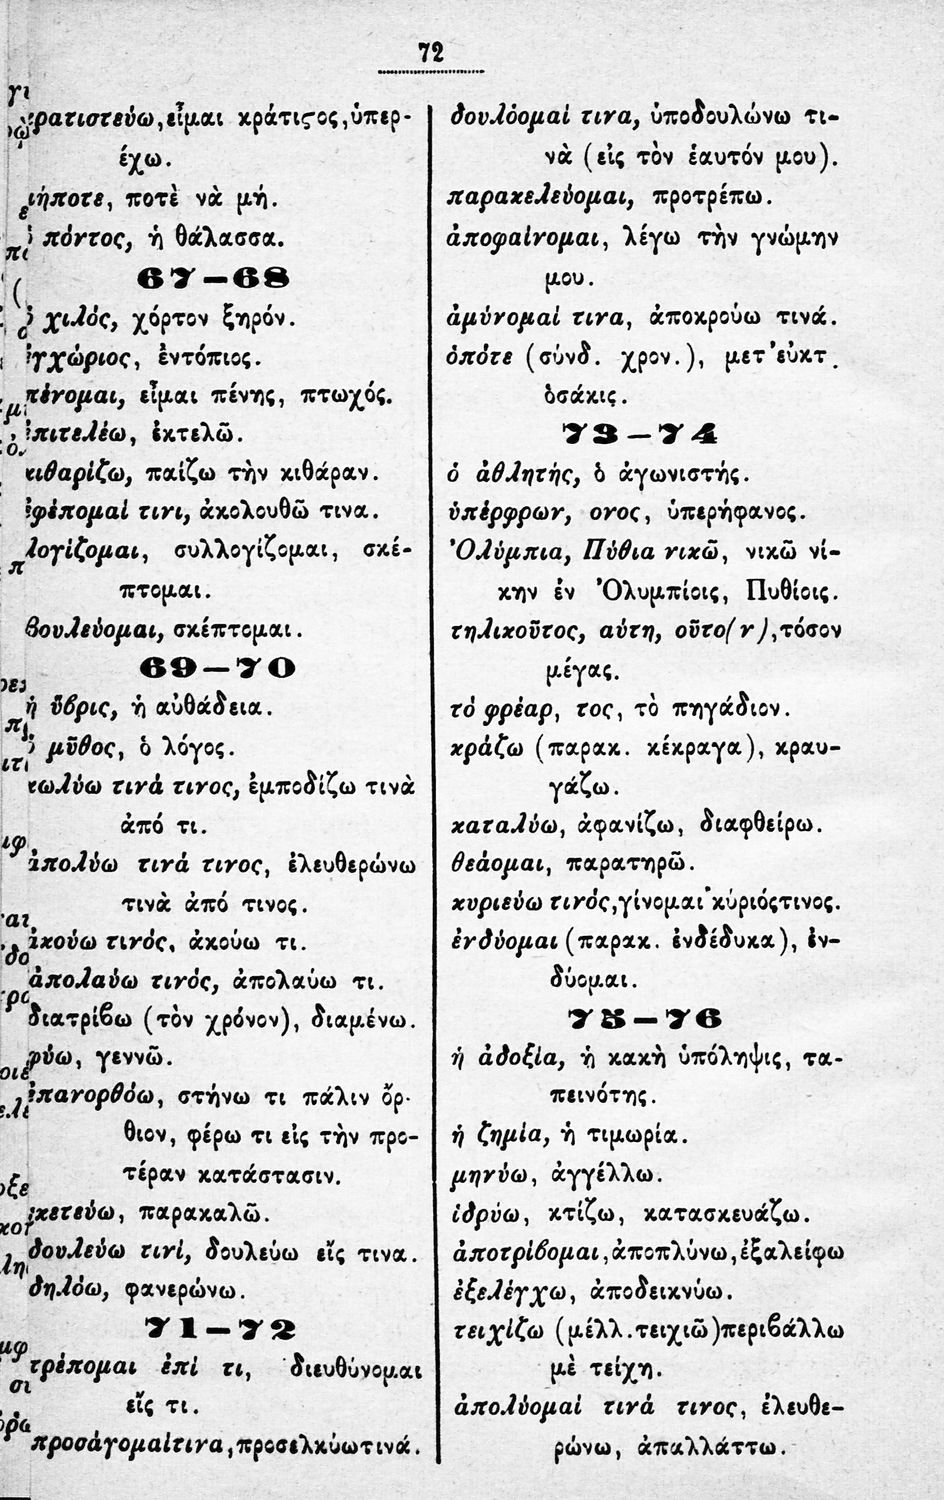 72
κρατιστεύω, εἶμαι κράτιςος, ὑπερ-
έχω.
μήποτε, ποτὲ νὰ μή.
ὁ πόντος, ἡ θάλασσα.
67—68
ὁ χιλός, χόρτον ξηρόν.
ἐγχώριος, ἐντόπιος.
πένομαι, εἶμαι πένης, πτωχός.
ἐπιτελέω, ἐκτελῶ.
κιθαρίζω, παίζω τὴν κιθάραν.
ἐφέπομαί τινι, ἀκολουθῶ τινα.
λογίζομαι, συλλογίζομαι, σκέ-
πτομαι.
βουλεύομαι, σκέπτομαι.
69—70
ἡ ὕβρις, ἡ αὐθάδεια.
ὁ μῦθος, ὁ λόγος.
κωλύω τινά τινος, ἐμποδίζω τινὰ
ἀπό τι.
ἀπολύω τινά τινος, ἐλευθερώνω
τινὰ ἀπό τινος.
ἀκούω τινός, ἀκούω τι.
ἀπολαύω τινός, ἀπολαύω τι.
διατρίβω (τὸν χρόνον), διαμένω.
φύω, γεννῶ.
ἐπανορθόω, στήνω τι πάλιν ὄρ-
θιον, φέρω τι εἰς τὴν προ-
τέραν κατάστασιν.
ἱκετεύω, παρακαλῶ.
δουλεύω τινί, δουλεύω εἴς τινα.
δηλόω, φανερώνω.
71—72
τρέπομαι ἐπί τι, διευθύνομαι
εἴς τι.
προσάγομαίτινα, προσελκύωτινά.
δουλόομαί τινα, ὑποδουλώνω τι-
νὰ (εἰς τὸν ἑαυτόν μου).
παρακελεύομαι, προτρέπω.
ἀποφαίνομαι, λέγω τὴν γνώμην
μου.
ἀμύνομαί τινα, ἀποκρούω τινά.
ὁπότε (σύνδ. χρον.), μετ᾿εὐκτ.
ὁσάκις.
73—74
ὁ ἀθλητής, ὁ ἀγωνιστής.
ὑπέρφρων, ονος, ὑπερήφανος.
Ὀλύμπια, Πύθια νικῶ, νικῶ νί-
κην ἐν Ὀλυμπίοις, Πυθίοις.
τηλικοῦτος, αύτη, οῦτο(ν), τόσον
μέγας.
τό φρέαρ, τος, τὸ πηγάδιον.
κράζω (παρακ. κέκραγα), κραυ-
γάζω.
καταλύω, ἀφανίζω, διαφθείρω.
θεάομαι, παρατηρῶ.
κυριεύω τινός, γίνομαι κύριόςτινος.
ἐνδύομαι (παρακ. ἐνδέδυκα), ἐν-
δύομαι.
75—76
ἡ ἀδοξία, ἡ κακὴ ὑπόληψις, τα-
πεινότης.
ἡ ζημία, ἡ τιμωρία.
μηνύω, ἀγγέλλω.
ἱδρύω, κτίζω, κατασκευάζω.
ἀποτρίβομαι, ἀποπλύνω, ἐξαλείφω
ἐξελέγχω, ἀποδεικνύω.
τειχίζω (μέλλ. τειχιῶ) περιβάλλω
μὲ τείχη.
ἀπολύομαί τινά τινος, ἐλευθε-
ρώνω, ἀπαλλάττω.